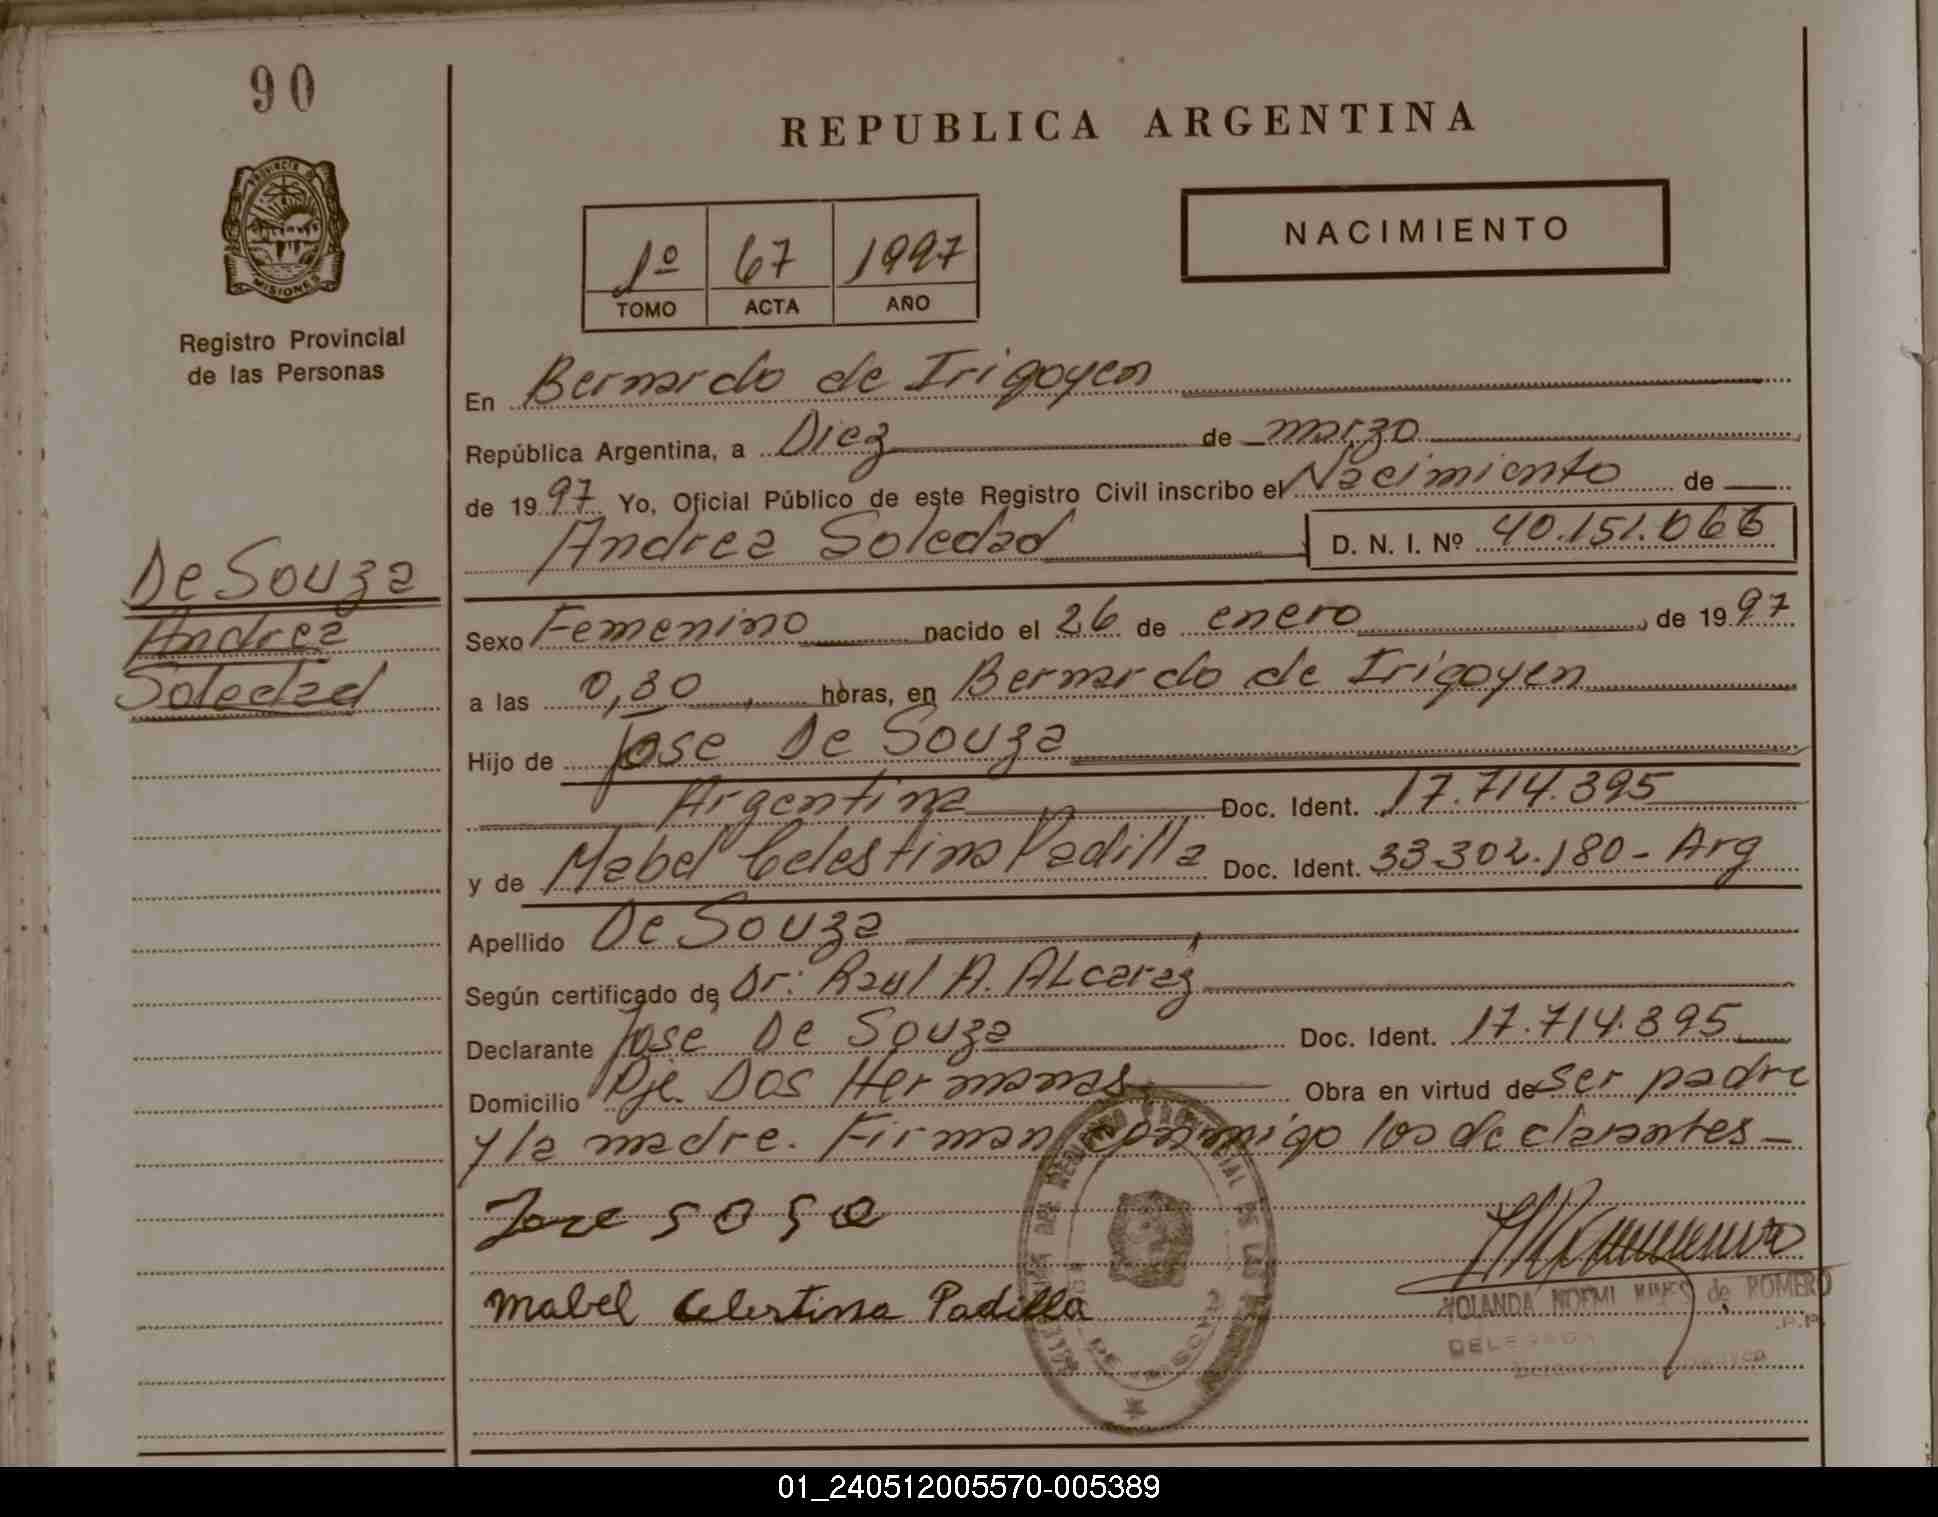 90
PROVINCIA DE
MISIONES
Registro Provincial
de las Personas
De Souza
Andrea
Soledad
REPUBLICA ARGENTINA
1º 67 1997
TOMO ACTA AÑO
NACIMIENTO
En Bernardo de Irigoyen
República Argentina, a Diez de marzo
de 1997 Yo, Oficial Público de este Registro Civil inscribo el Nacimiento de
Andrea Soledad D. N. I. Nº 40.151.066
Sexo Femenino nacido el 26 de enero, de 1997
a las 0,30, horas, en Bernardo de Irigoyen
Hijo de Jose De Souza
Argentina Doc. Ident. 17.714.395
y de Mabel Celestina Padilla Doc. Ident. 33.302.180 - Arg
Apellido De Souza
Según certificado de Dr: Raul A. ALcaraz
Declarante Jose De Souza Doc. Ident. 17.714.395
Domicilio Pje. Dos Hermanas Obra en virtud de ser padre
y la madre. Firman conmigo los declarantes -
Jose
Mabel Celestina Padilla
YOLANDA NOEMI de ROMERO
DELEGADA
01_240512005570-005389